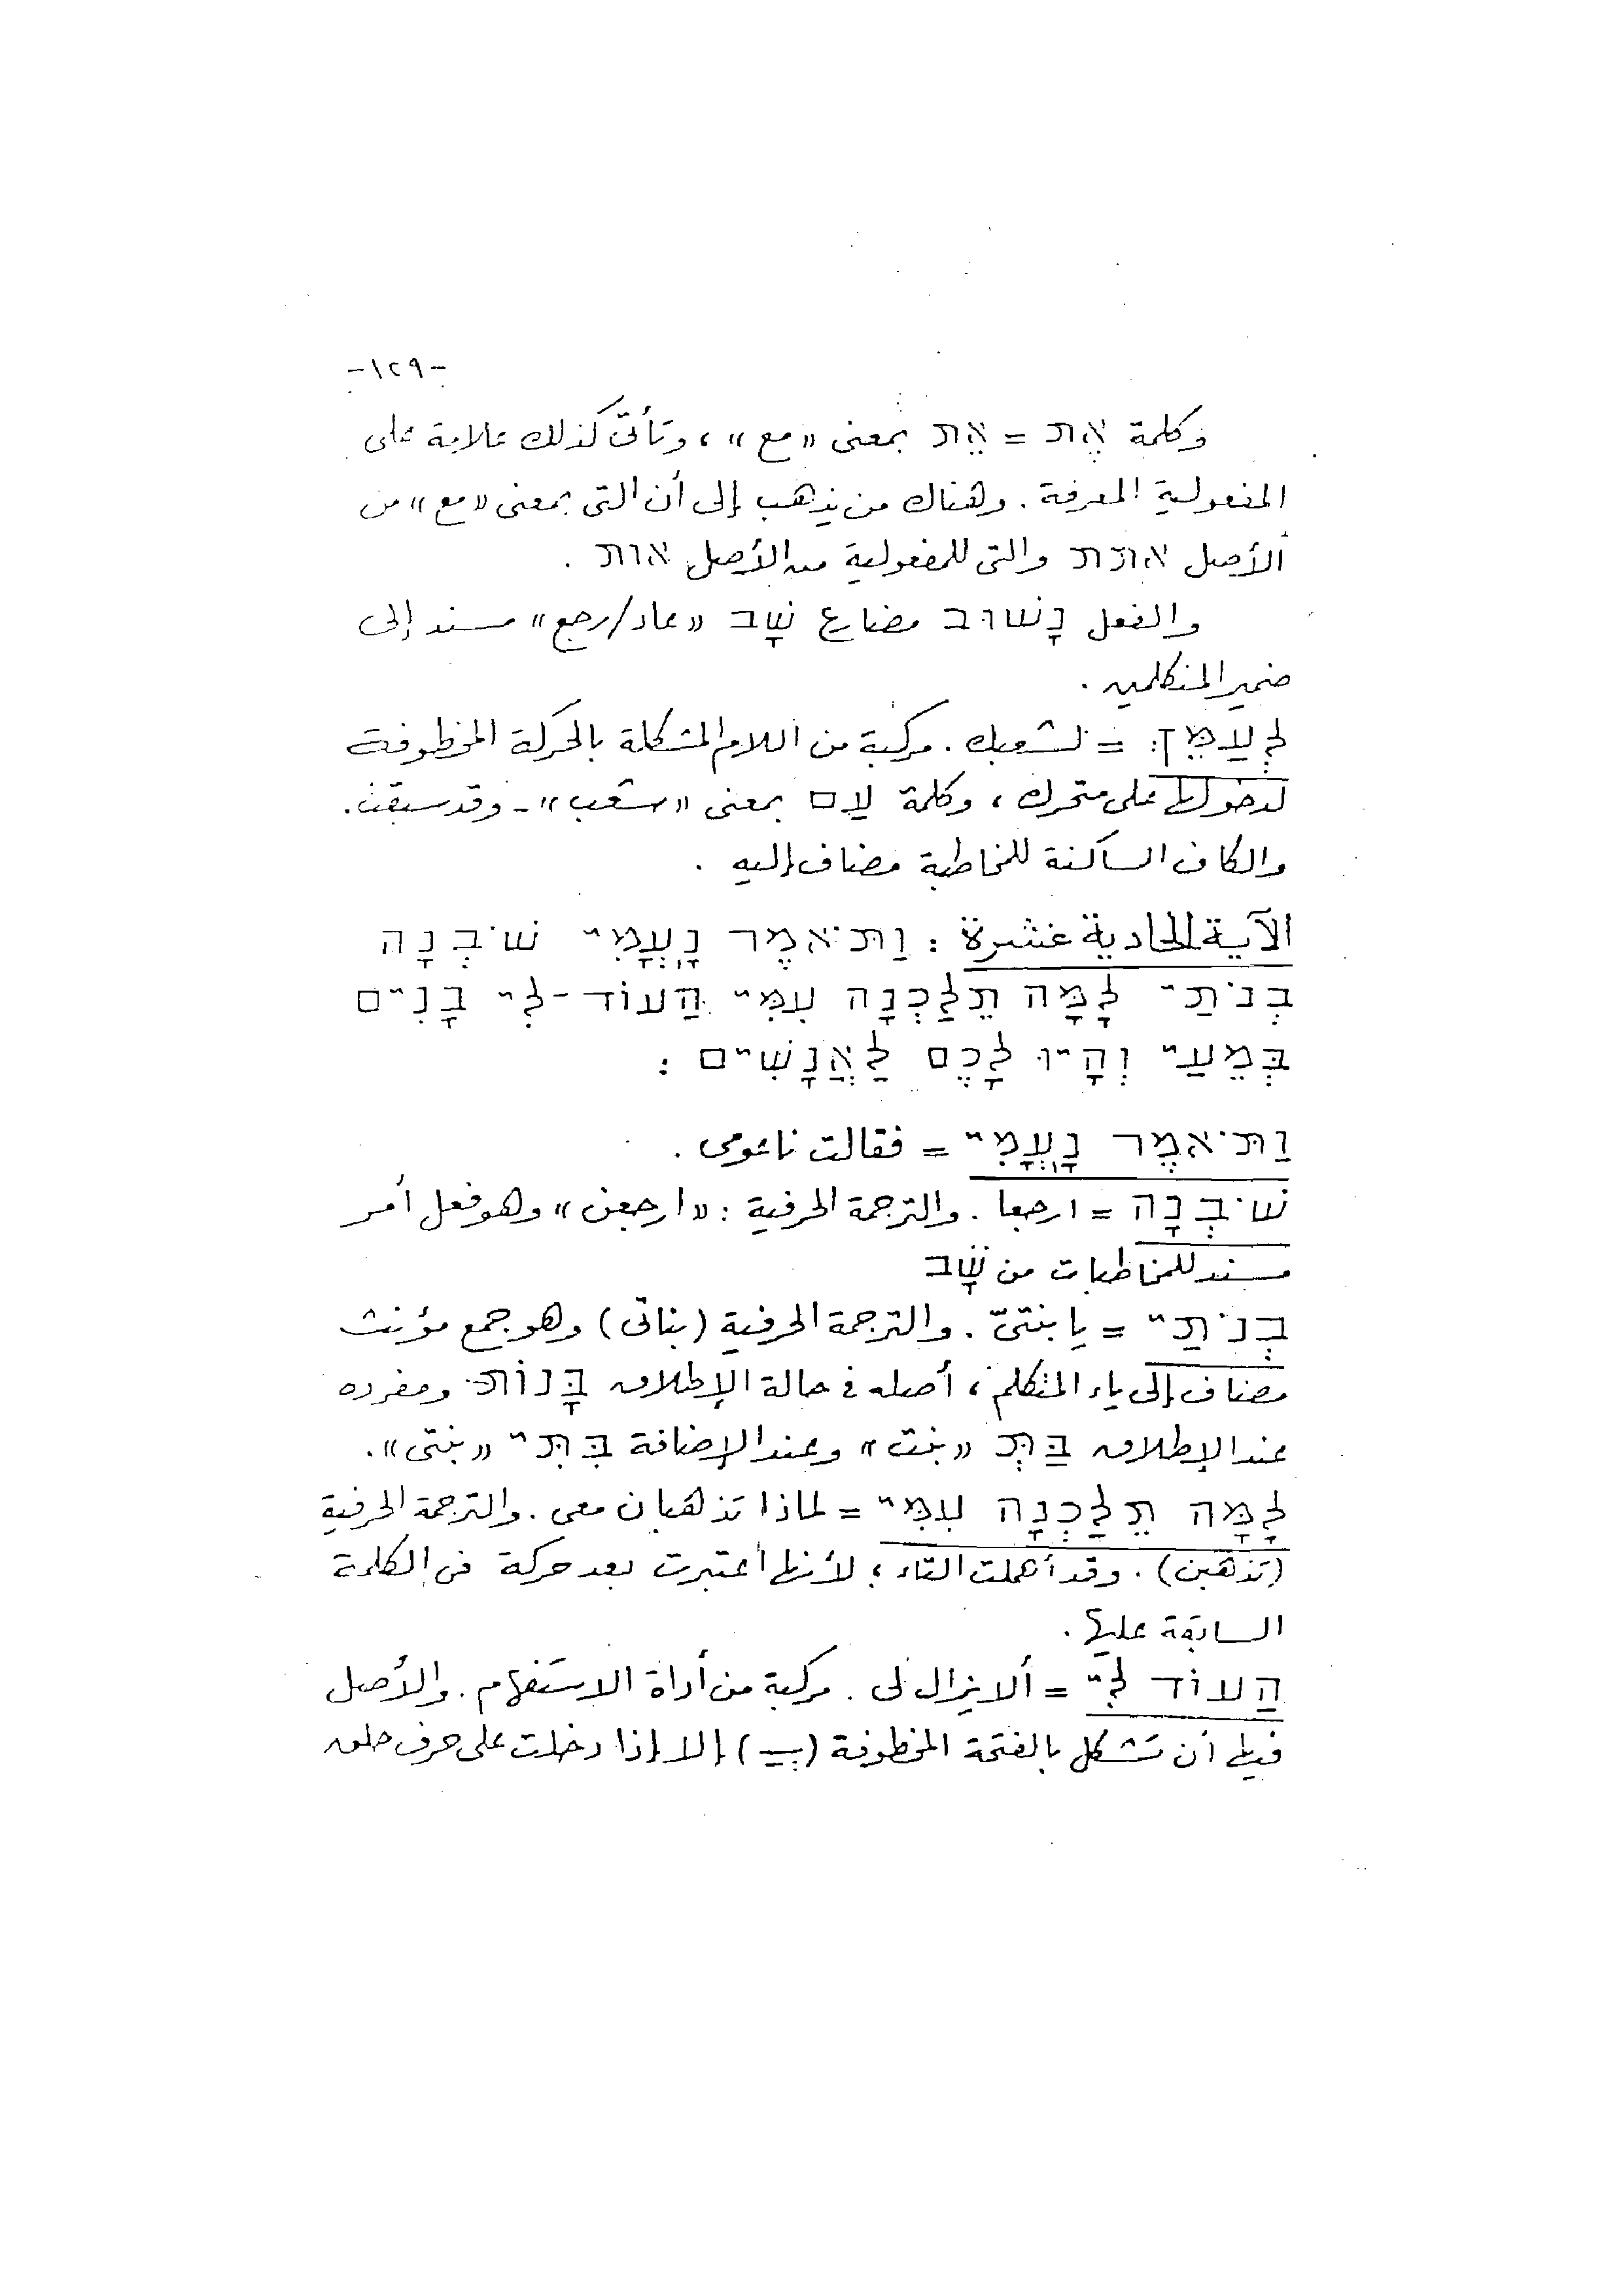 -١٢٩-
وكلمة אֶת = אֵת بمعنى «مع»، وتأتى كذلك علامة على
المفعولية المعرفة. وهناك من يذهب إلى أن التى بمعنى «مع» من
الأصل אנת والتى للمفعولية من الأصل אות .
والفعل נָשׁוּב مضارع שָׁב «عاد/رجع» مسند إلى
ضمير المتكلمين .
לְעַמֵּךְ: = لشعبك . مركبة من اللام المشكلة بالحركة المخطوفة
لدخولها على متحرك ، وكلمة עַם بمعنى «شعب» - وقد سبقت.
والكاف الساكنة للمخاطبة مضاف إليه .
الآية الحادية عشرة : וַתֹּאמֶר נָעֳמִי שֹׁבְנָה
בְּנֹתַי לָמָּה תֵלַכְנָה עִמִּי הַעוֹד-לִי בָנִים
בְּמֵעַי וְהָיוּ לָכֶם לַאֲנָשִׁים :
וַתֹּאמֶר נָעֳמִי = فقالت ناعومى .
שֹׁבְנָה = ارجعا . والترجمة الحرفية : «ارجعن» وهو فعل أمر
مسند للمخاطبات من שָׁב
בְּנֹתַי = يا بنتىّ . والترجمة الحرفية (بناتى) وهو جمع مؤنث
مضاف إلى ياء المتكلم ، أصله فى حالة الإطلاق בָּנוֹת ومفرده
عند الإطلاق בַּתְּ «بنت» وعند الإضافة בִּתִּי «بنتى».
לָמָּה תֵלַכְנָה עִמִּי = لماذا تذهبان معى . والترجمة الحرفية
(تذهبن) . وقد أهملت التاء ؛ لأنها اعتبرت بعد حركة فى الكلمة
السابقة عليها .
הַעוֹד לִי = ألا يزال لى . مركبة من أداة الاستفهام . والأصل
فيها أن تشكل بالفتحة المخطوفة (ֲ) إلا إذا دخلت على حرف حلق